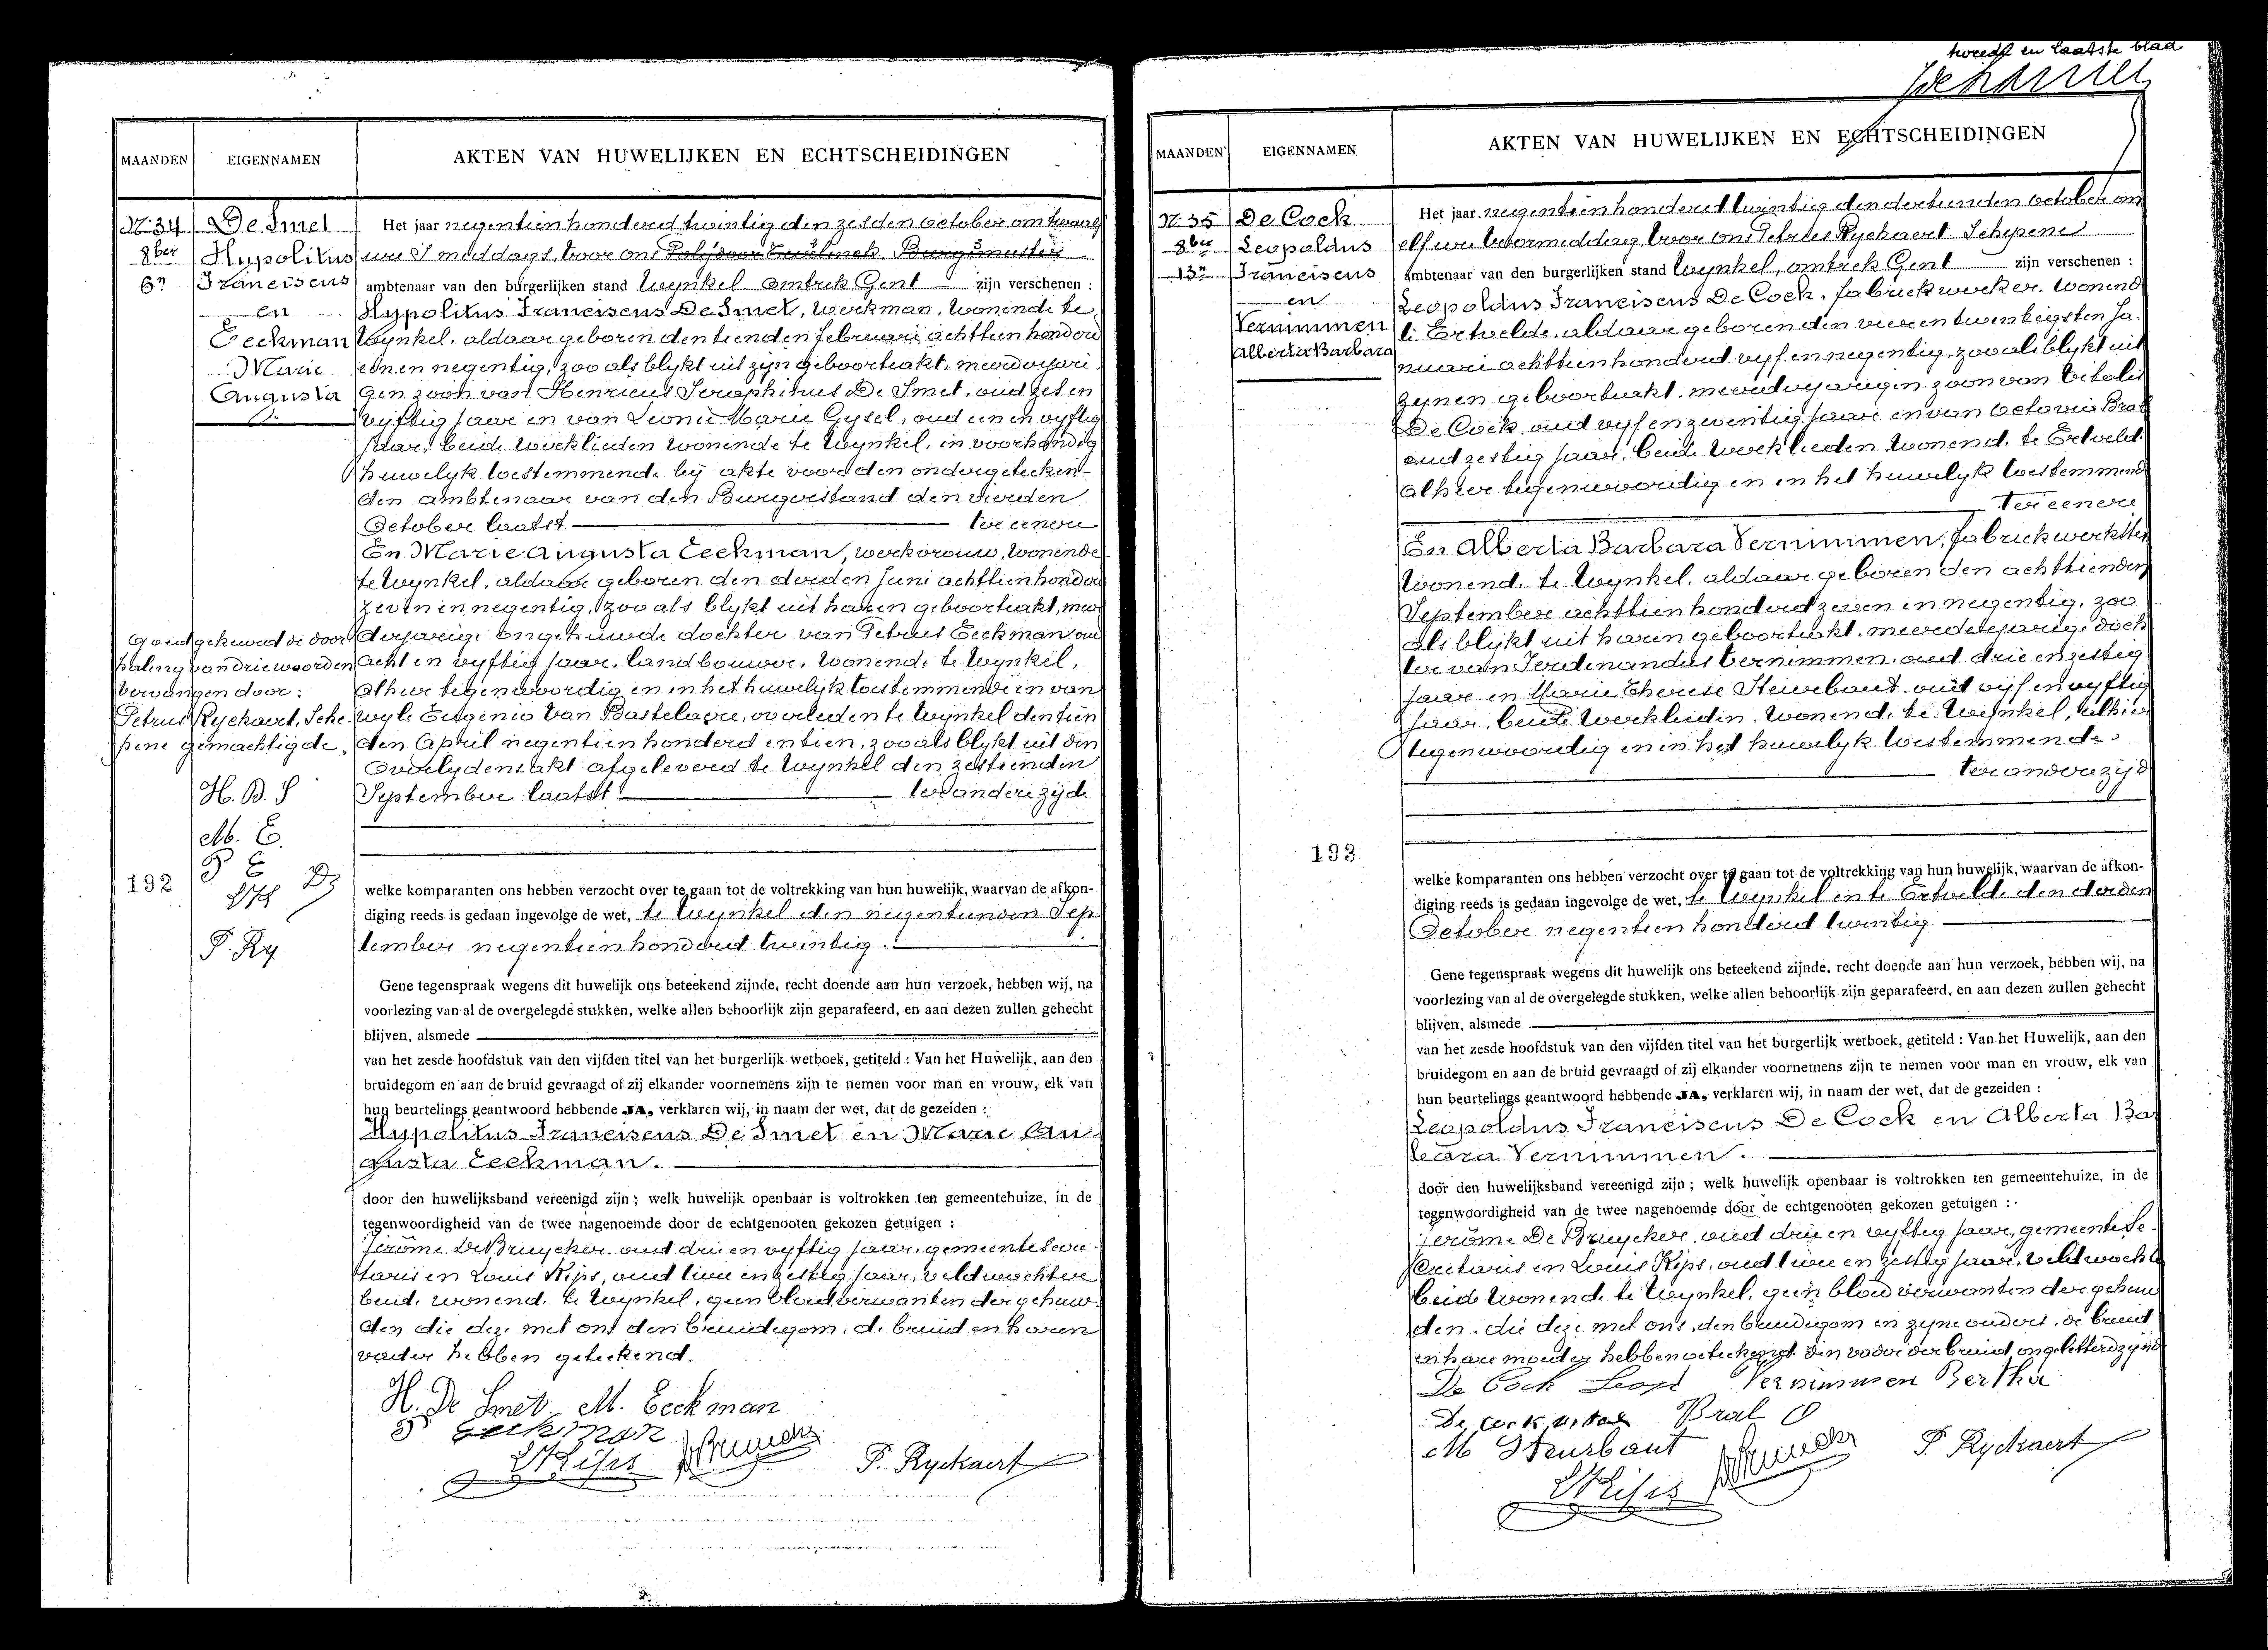 MAANDEN
EIGENNAMEN
AKTEN VAN HUWELIJKEN EN ECHTSCHEIDINGEN
N. 34
8ber
6n
De Smet
Hypolitus
Franciscus
en
Eeckman
Marie
Augusta
Het jaar negentien honderd twintig den zesden October om twaalf
ure 's middags, voor ons Polydoor Burgemeester
ambtenaar van den burgerlijken stand Wynkel omtrek Gent zijn verschenen :
Hypolitus Franciscus De Smet, werkman, wonende te
Wynkel, aldaar geboren den tienden februari achttien honderd
een en negentig, zoo als blykt uit zyn geboorteakt, meerderjari
gen zoon van Henricus Seraphinus De Smet, oud zes en
vyftig jaar en van Leonie Marie Gysel, oud een en vyftig
jaar, beide werklieden wonende te Wynkel, in voorhandig
huwelyk toestemmende by akte voor den ondergeteeken-
den ambtenaar van den Burgerstand den vierden
October laatst ter eenere
En Marie Augusta Eeckman, werkvrouw, wonende
te Wynkel, aldaar geboren den derden Juni achttien honderd
zeven en negentig, zoo als blykt uit haren geboorteakt, meer
derjarige ongehuwde dochter van Petrus Eeckman oud
acht en vyftig jaar, landbouwer, wonende te Wynkel,
alhier tegenwoordig en in het huwelyk toestemmende en van
wyle Eugenie Van Bastelaere, overleden te Wynkel den tien
den April negentien honderd en tien, zoo als blykt uit den
Overlydensakt afgeleverd te Wynkel den zestienden
September laatst ter andere zijde
Goedgekeurd de door
haling van drie woorden
vervangen door :
Petrus Ryckaert, Sche
pene gemachtigde,
H. D. S
M. E.
P E
P. Ry
192
welke komparanten ons hebben verzocht over te gaan tot de voltrekking van hun huwelijk, waarvan de afkon-
diging reeds is gedaan ingevolge de wet, te Wynkel den negentienden Sep
tember negentien honderd twintig.
Gene tegenspraak wegens dit huwelijk ons beteekend zijnde, recht doende aan hun verzoek, hebben wij, na
voorlezing van al de overgelegde stukken, welke allen behoorlijk zijn geparafeerd, en aan dezen zullen gehecht
blijven, alsmede
van het zesde hoofdstuk van den vijfden titel van het burgerlijk wetboek, getiteld : Van het Huwelijk, aan den
bruidegom en aan de bruid gevraagd of zij elkander voornemens zijn te nemen voor man en vrouw, elk van
hun beurtelings geantwoord hebbende JA, verklaren wij, in naam der wet, dat de gezeiden :
Hypolitus Franciscus De Smet en Marie Au
gusta Eeckman.
door den huwelijksband vereenigd zijn ; welk huwelijk openbaar is voltrokken ten gemeentehuize, in de
tegenwoordigheid van de twee nagenoemde door de echtgenooten gekozen getuigen :
Jerôme De Bruycker oud drie en vyftig jaar, gemeentesecre
taris en Louis Kips, oud twee en zestig jaar, veldwachter
beide wonende te Wynkel, geen bloedverwanten der gehuw
den die deze met ons den bruidegom, de bruid en haren
vader hebben geteekend.
H. De Smet M. Eeckman
P Eeckman
L Kips De Bruycker
P. Ryckaert
tweede en laatste blad
MAANDEN
EIGENNAMEN
AKTEN VAN HUWELIJKEN EN ECHTSCHEIDINGEN
N. 35
8ber
13n
De Cock
Leopoldus
Franciscus
en
Vernimmen
Alberta Barbara
Het jaar negentien honderd twintig den dertienden October om
elf ure voormiddag, voor ons Petrus Ryckaert Schepene
ambtenaar van den burgerlijken stand Wynkel, omtrek Gent zijn verschenen :
Leopoldus Franciscus De Cock, fabriekwerker, wonend
te Ertvelde, aldaar geboren den vier en twintigsten Ja
nuari achttien honderd vyf en negentig, zoo als blykt uit
zynen geboorteakt, meerderjarigen zoon van Vitalis
De Cock, oud vyf en zeventig jaar en van Octavia Bral
oud zestig jaar, beide werklieden wonende te Ertveld
alhier tegenwoordig en in het huwelyk toestemmend
Ter eenere
En Alberta Barbara Vernimmen, fabriekwerkster
wonende te Wynkel, aldaar geboren den achttienden
September achttien honderd zeven en negentig, zoo
als blykt uit haren geboorteakt, meerderjarige doch
ter van Ferdinandus Vernimmen, oud drie en zestig
jaar en Marie Therese Steurbaut oud vyf en vyftig
jaar, beide werklieden, wonende te Wynkel, alhier
tegenwoordig en in het huwelyk toestemmende
ter andere zijd
193
welke komparanten ons hebben verzocht over te gaan tot de voltrekking van hun huwelijk, waarvan de afkon-
diging reeds is gedaan ingevolge de wet, te Wynkel en te Ertvelde den derden
October negentien honderd twintig
Gene tegenspraak wegens dit huwelijk ons beteekend zijnde, recht doende aan hun verzoek, hebben wij, na
voorlezing van al de overgelegde stukken, welke allen behoorlijk zijn geparafeerd, en aan dezen zullen gehecht
blijven, alsmede
van het zesde hoofdstuk van den vijfden titel van het burgerlijk wetboek, getiteld : Van het Huwelijk, aan den
bruidegom en aan de bruid gevraagd of zij elkander voornemens zijn te nemen voor man en vrouw, elk van
hun beurtelings geantwoord hebbende JA, verklaren wij, in naam der wet, dat de gezeiden :
Leopoldus Franciscus De Cock en Alberta Bar
bara Vernimmen.
door den huwelijksband vereenigd zijn ; welk huwelijk openbaar is voltrokken ten gemeentehuize, in de
tegenwoordigheid van de twee nagenoemde door de echtgenooten gekozen getuigen :
Jerôme De Bruycker, oud drie en vyftig jaar, gemeente Se
cretaris en Louis Kips, oud twee en zestig jaar, veldwachte
beide wonende te Wynkel, geen bloedverwanten der gehuw
den, die deze met ons, den bruidegom en zyne ouders, de bruid
en hare moeder hebben geteekend den vader der bruid ongeletterd zynd
De Cock Leop Vernimmen Bertha
De cock vital Bral O
M Steurbaut
L Kips De Bruycker
P. Ryckaert